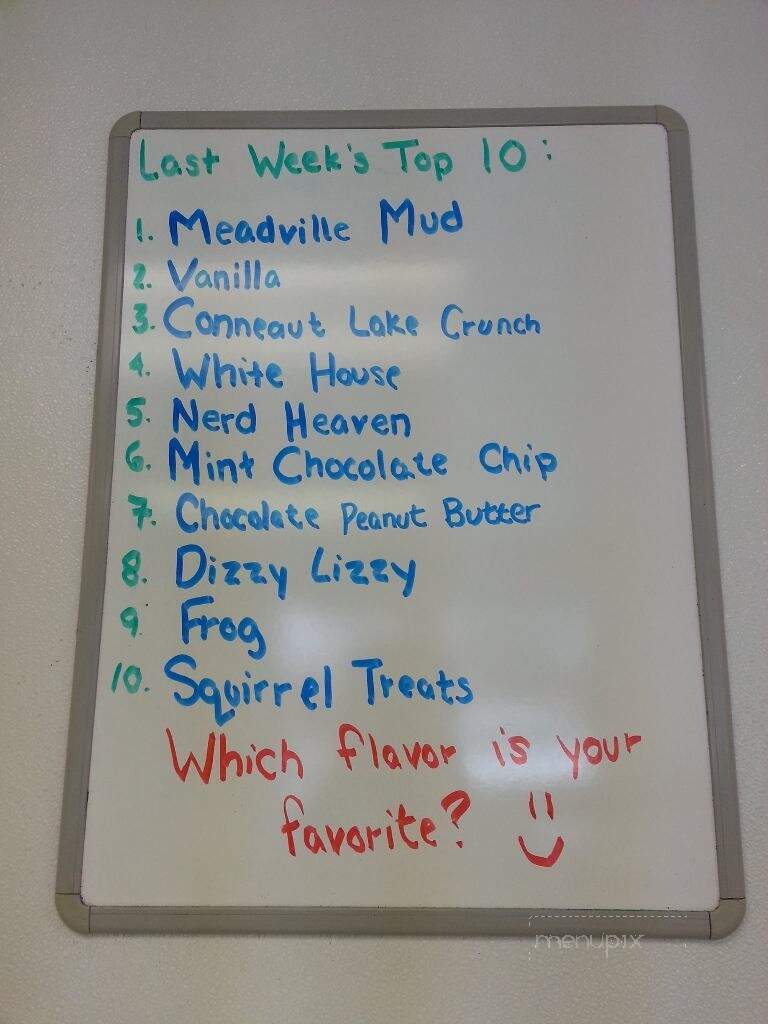 Last Week's Top 10:
1. Meadville Mud
2. Vanilla
3. Conneaut Lake Crunch
4. White House
5. Nerd Heaven
6. Mint Chocolate Chip
7. Chocolate Peanut Butter
8. Dizzy Lizzy
9. Frog
10. Squirrel Treats
Which flavor is your
favorite?
menupix